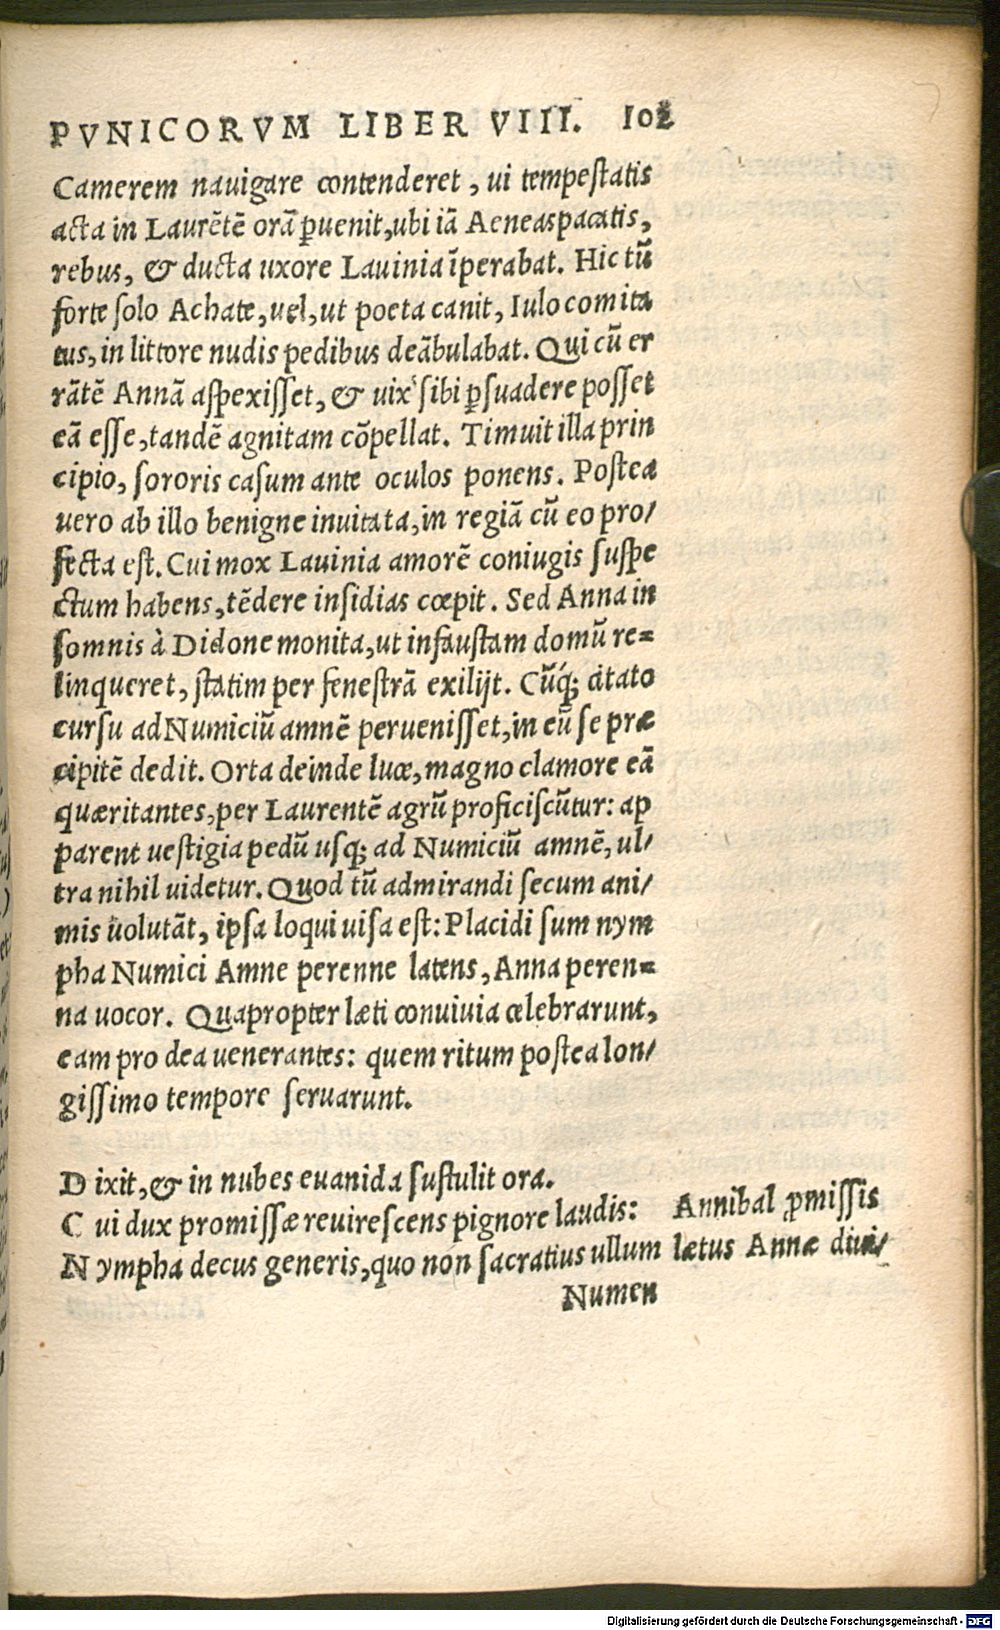 PVNICORVM LIBER VIII. 102
Camerem nauigare contenderet, ui tempestatis
acta in Laurētē orā ꝑuenit, ubi iā Aeneas pacatis,
rebus, & ducta uxore Lauinia īperabat. Hic tū
forte solo Achate, uel, ut poeta canit, Iulo comita
tus, in littore nudis pedibus deābulabat. Qui cū er
rātē Annā aspexisset, & uix sibi ꝑsuadere posset
eā esse, tandē agnitam cōpellat. Timuit illa prin
cipio, sororis casum ante oculos ponens. Postea
uero ab illo benigne inuitata, in regiā cū eo pro/
fecta est. Cui mox Lauinia amorē coniugis suspe
ctum habens, tēdere insidias cœpit. Sed Anna in
somnis à Didone monita, ut infaustam domū re=
linqueret, statim per fenestrā exilijt. Cūq́; citato
cursu ad Numiciū amnē peruenisset, in eū se præ
cipitē dedit. Orta deinde luce, magno clamore eā
quæritantes, per Laurentē agrū proficiscūtur: ap
parent uestigia pedū usq; ad Numiciū amnē, ul/
tra nihil uidetur. Quod tū admirandi secum ani/
mis uolutāt, ipsa loqui uisa est: Placidi sum nym
pha Numici Amne perenne latens, Anna peren=
na uocor. Quapropter læti conuiuia celebrarunt,
eam pro dea uenerantes: quem ritum postea lon/
gissimo tempore seruarunt.
D ixit, & in nubes euanida sustulit ora.
C ui dux promissæ reuirescens pignore laudis: Annibal ꝓmissis
N ympha decus generis, quo non sacratius ullum lætus Annæ diui/
Numen
Digitalisierung gefördert durch die Deutsche Forschungsgemeinschaft - DFG